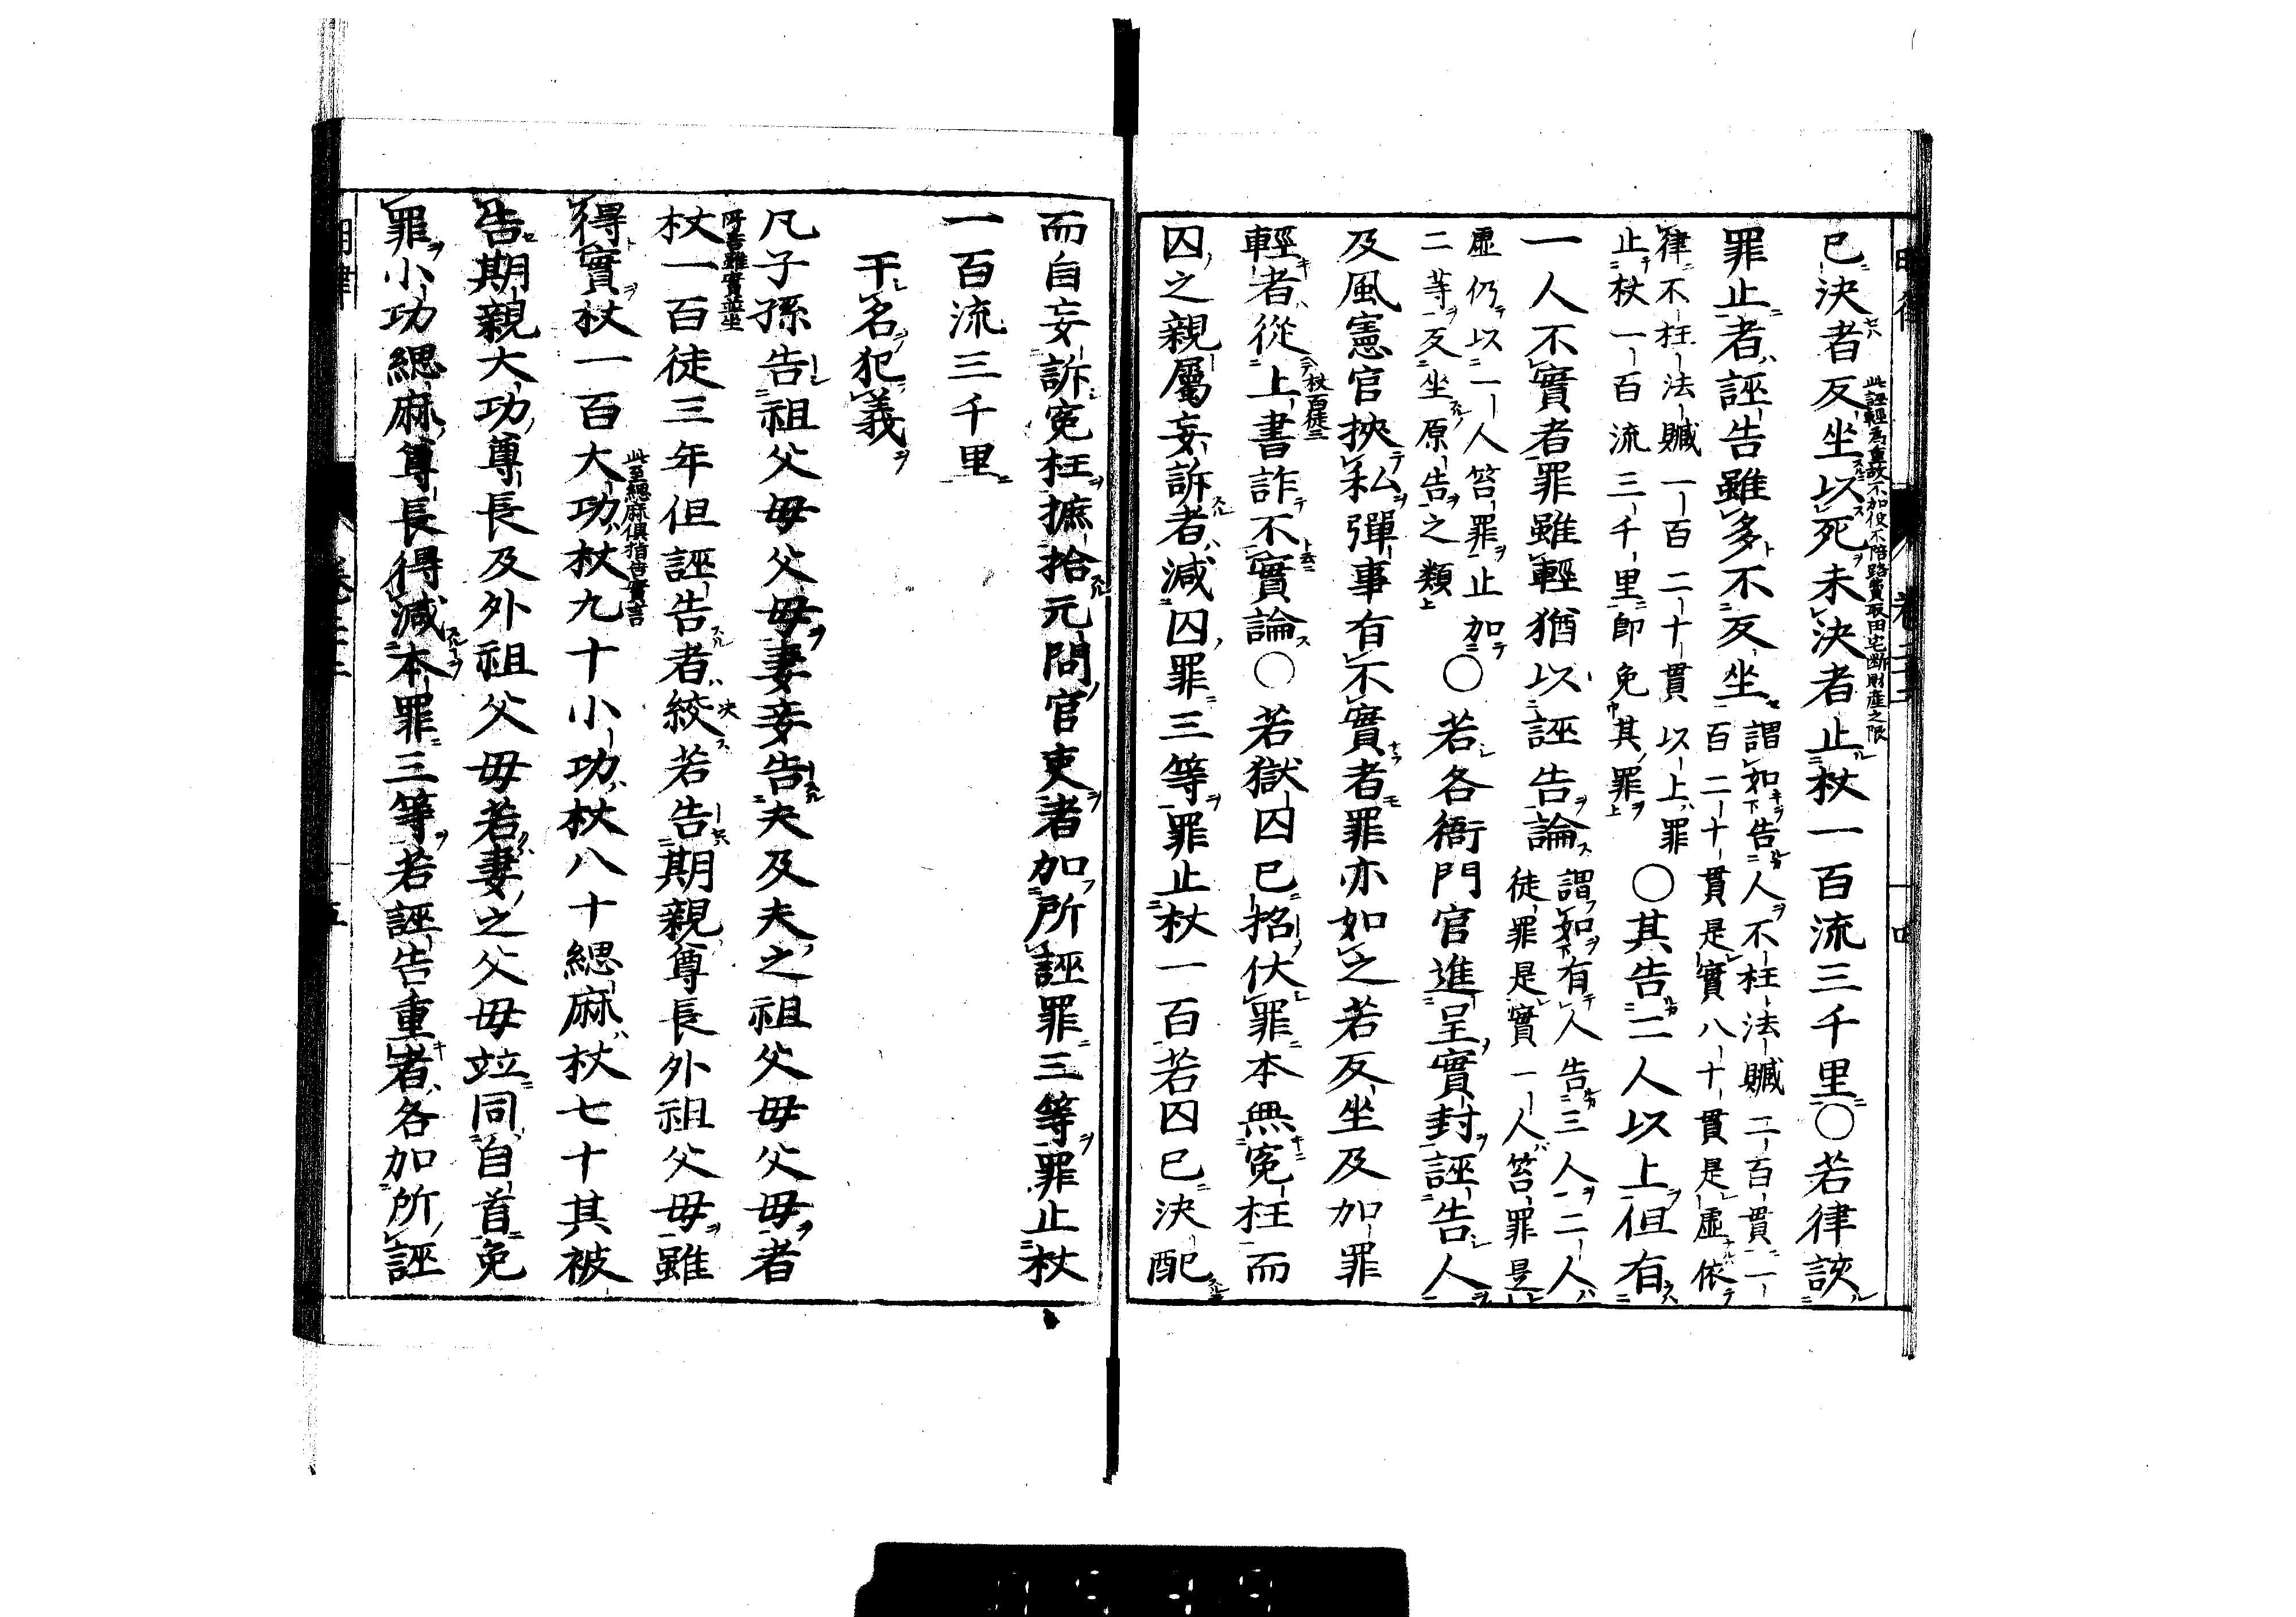 已決者反坐以死未決者止杖一百流三千里○若律該
此誣輕為重故不加役不陪路費取田宅斷財産之限
罪止者誣告雖多不反坐謂如告人不枉法贓二百貫一
百二十貫是實八十貫是虛依
律不枉法贓一百二十貫以上罪
止杖一百流三千里即免其罪○其告二人以上但有
一人不實者罪雖輕猶以誣告論謂如有人告三人二人
徒罪是實一人笞罪是
虛仍以一人笞罪止加
二等反坐原告之類○若各衙門官進呈實封誣告人
及風憲官挾私彈事有不實者罪亦如之若反坐及加罪
輕者從上書詐不實論○若獄囚已招伏罪本無冤枉而
杖百徒三
囚之親屬妄訴者減囚罪三等罪止杖一百若囚已決配
而自妄訴冤枉摭拾元問官吏者加所誣罪三等罪止杖
一百流三千里
干名犯義
凡子孫告祖父母父母妻妾告夫及夫之祖父母父母者
所告雖實並坐
杖一百徒三年但誣告者絞若告期親尊長外祖父母雖
決
得實杖一百大功杖九十小功杖八十緦麻杖七十其被
此至緦麻俱指告實言
告期親大功尊長及外祖父母若妻之父母竝同自首免
罪小功緦麻尊長得減本罪三等若誣告重者各加所誣